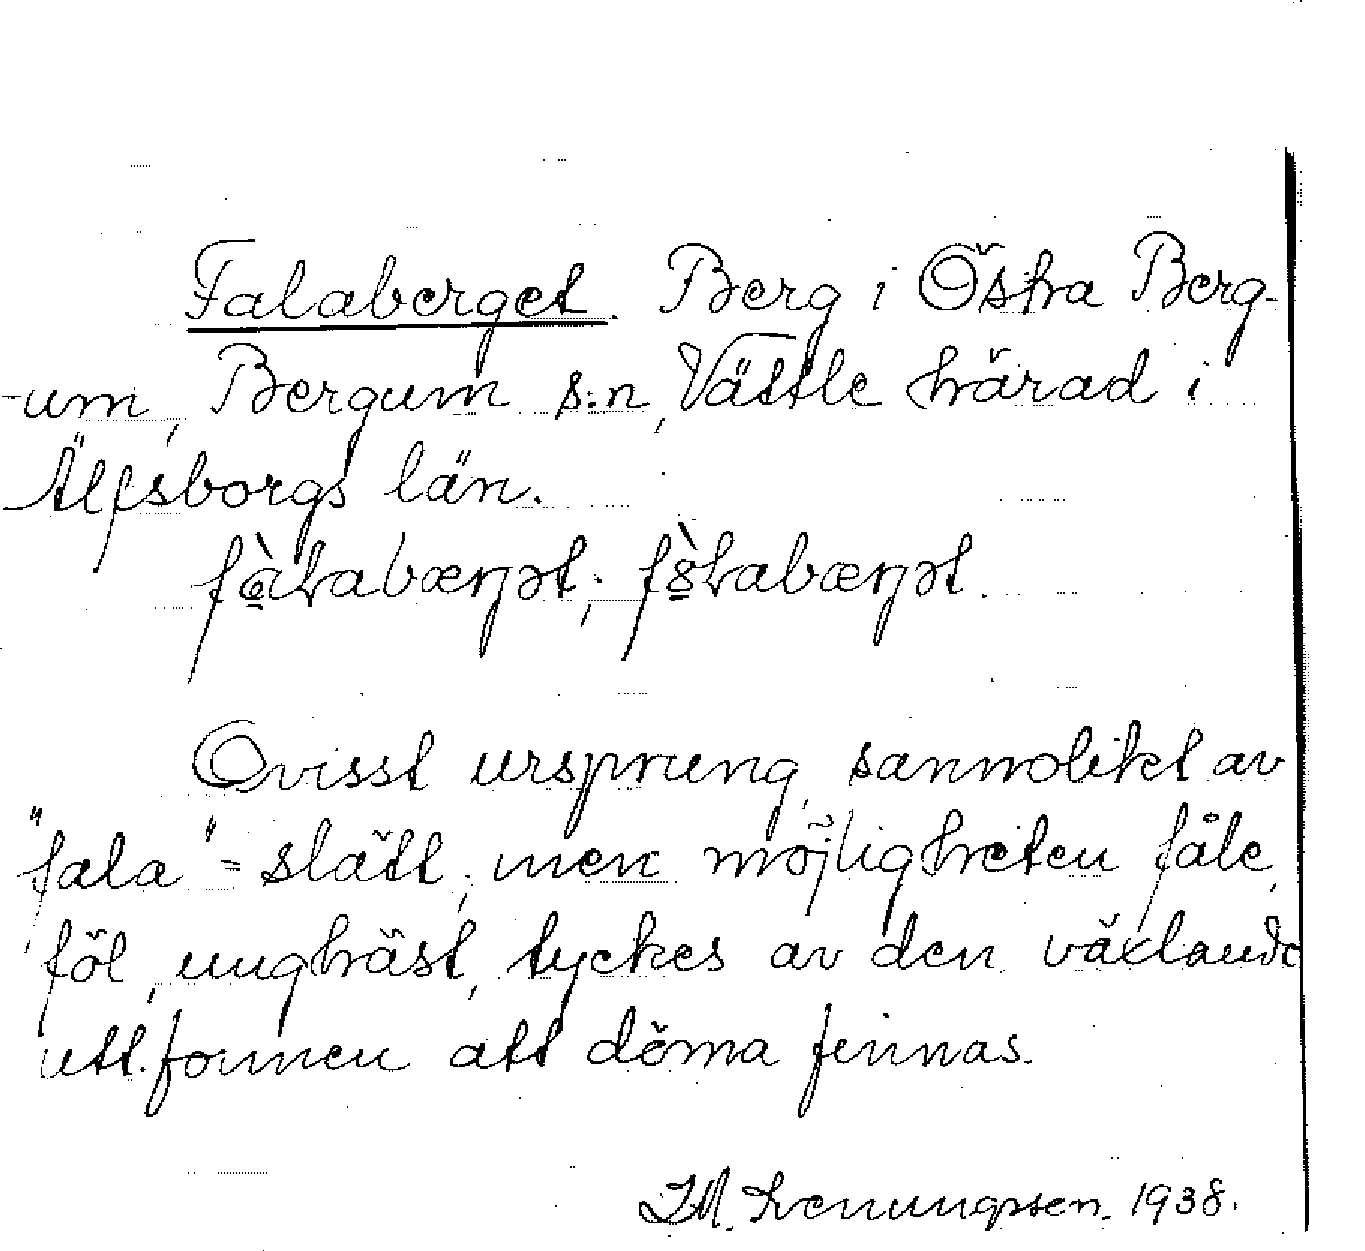 Falaberget. Berg i Östra Berg-
-um, Bergum s:n, Vättle härad i
Älfsborgs län.
Ovisst ursprung, sannolikt av
"fala" = slätt, men möjligheten fåle,
föl, unghäst, tyckes av den växlande
utt.formen att döma finnas.
1938.